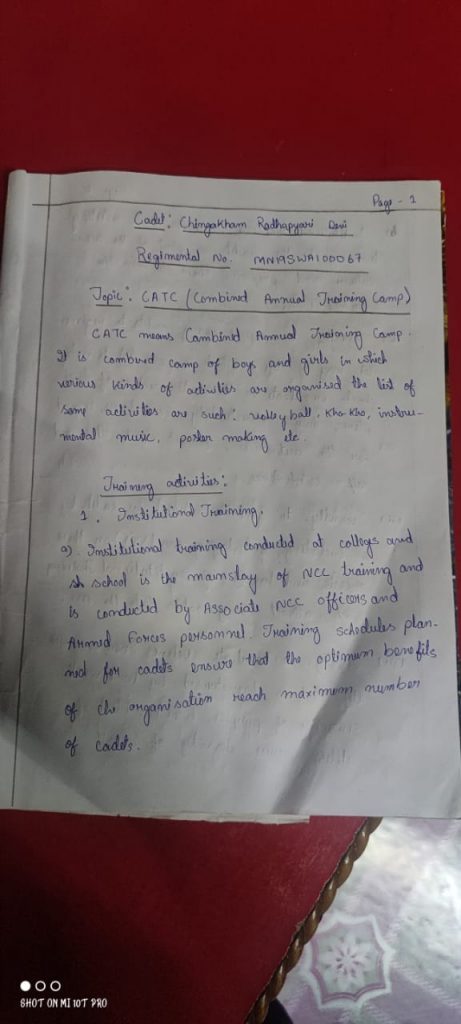 Page - 1
Cadet: Chingakham Radhapyari Devi
Regimental No. MN19SWA100067
Topic: CATC (Combined Annual Training Camp)
CATC means Combined Annual Training Camp.
It is combined camp of boys and girls in which
verious kinds of activities are organised the list of
some activities are such: volleyball, Kho-Kho, instru-
mental music, poster making etc.
Training activities:
1. Institutional Training.
a) Institutional training conducted at colleges and
sh school is the mainstay of NCC training and
is conducted by Associate NCC officers and
Armed Forces personnel. Training schedules plan-
ned for cadets ensure that the optimum benefits
of the organisation reach maximum number
of cadets.
SHOT ON MI 10T PRO